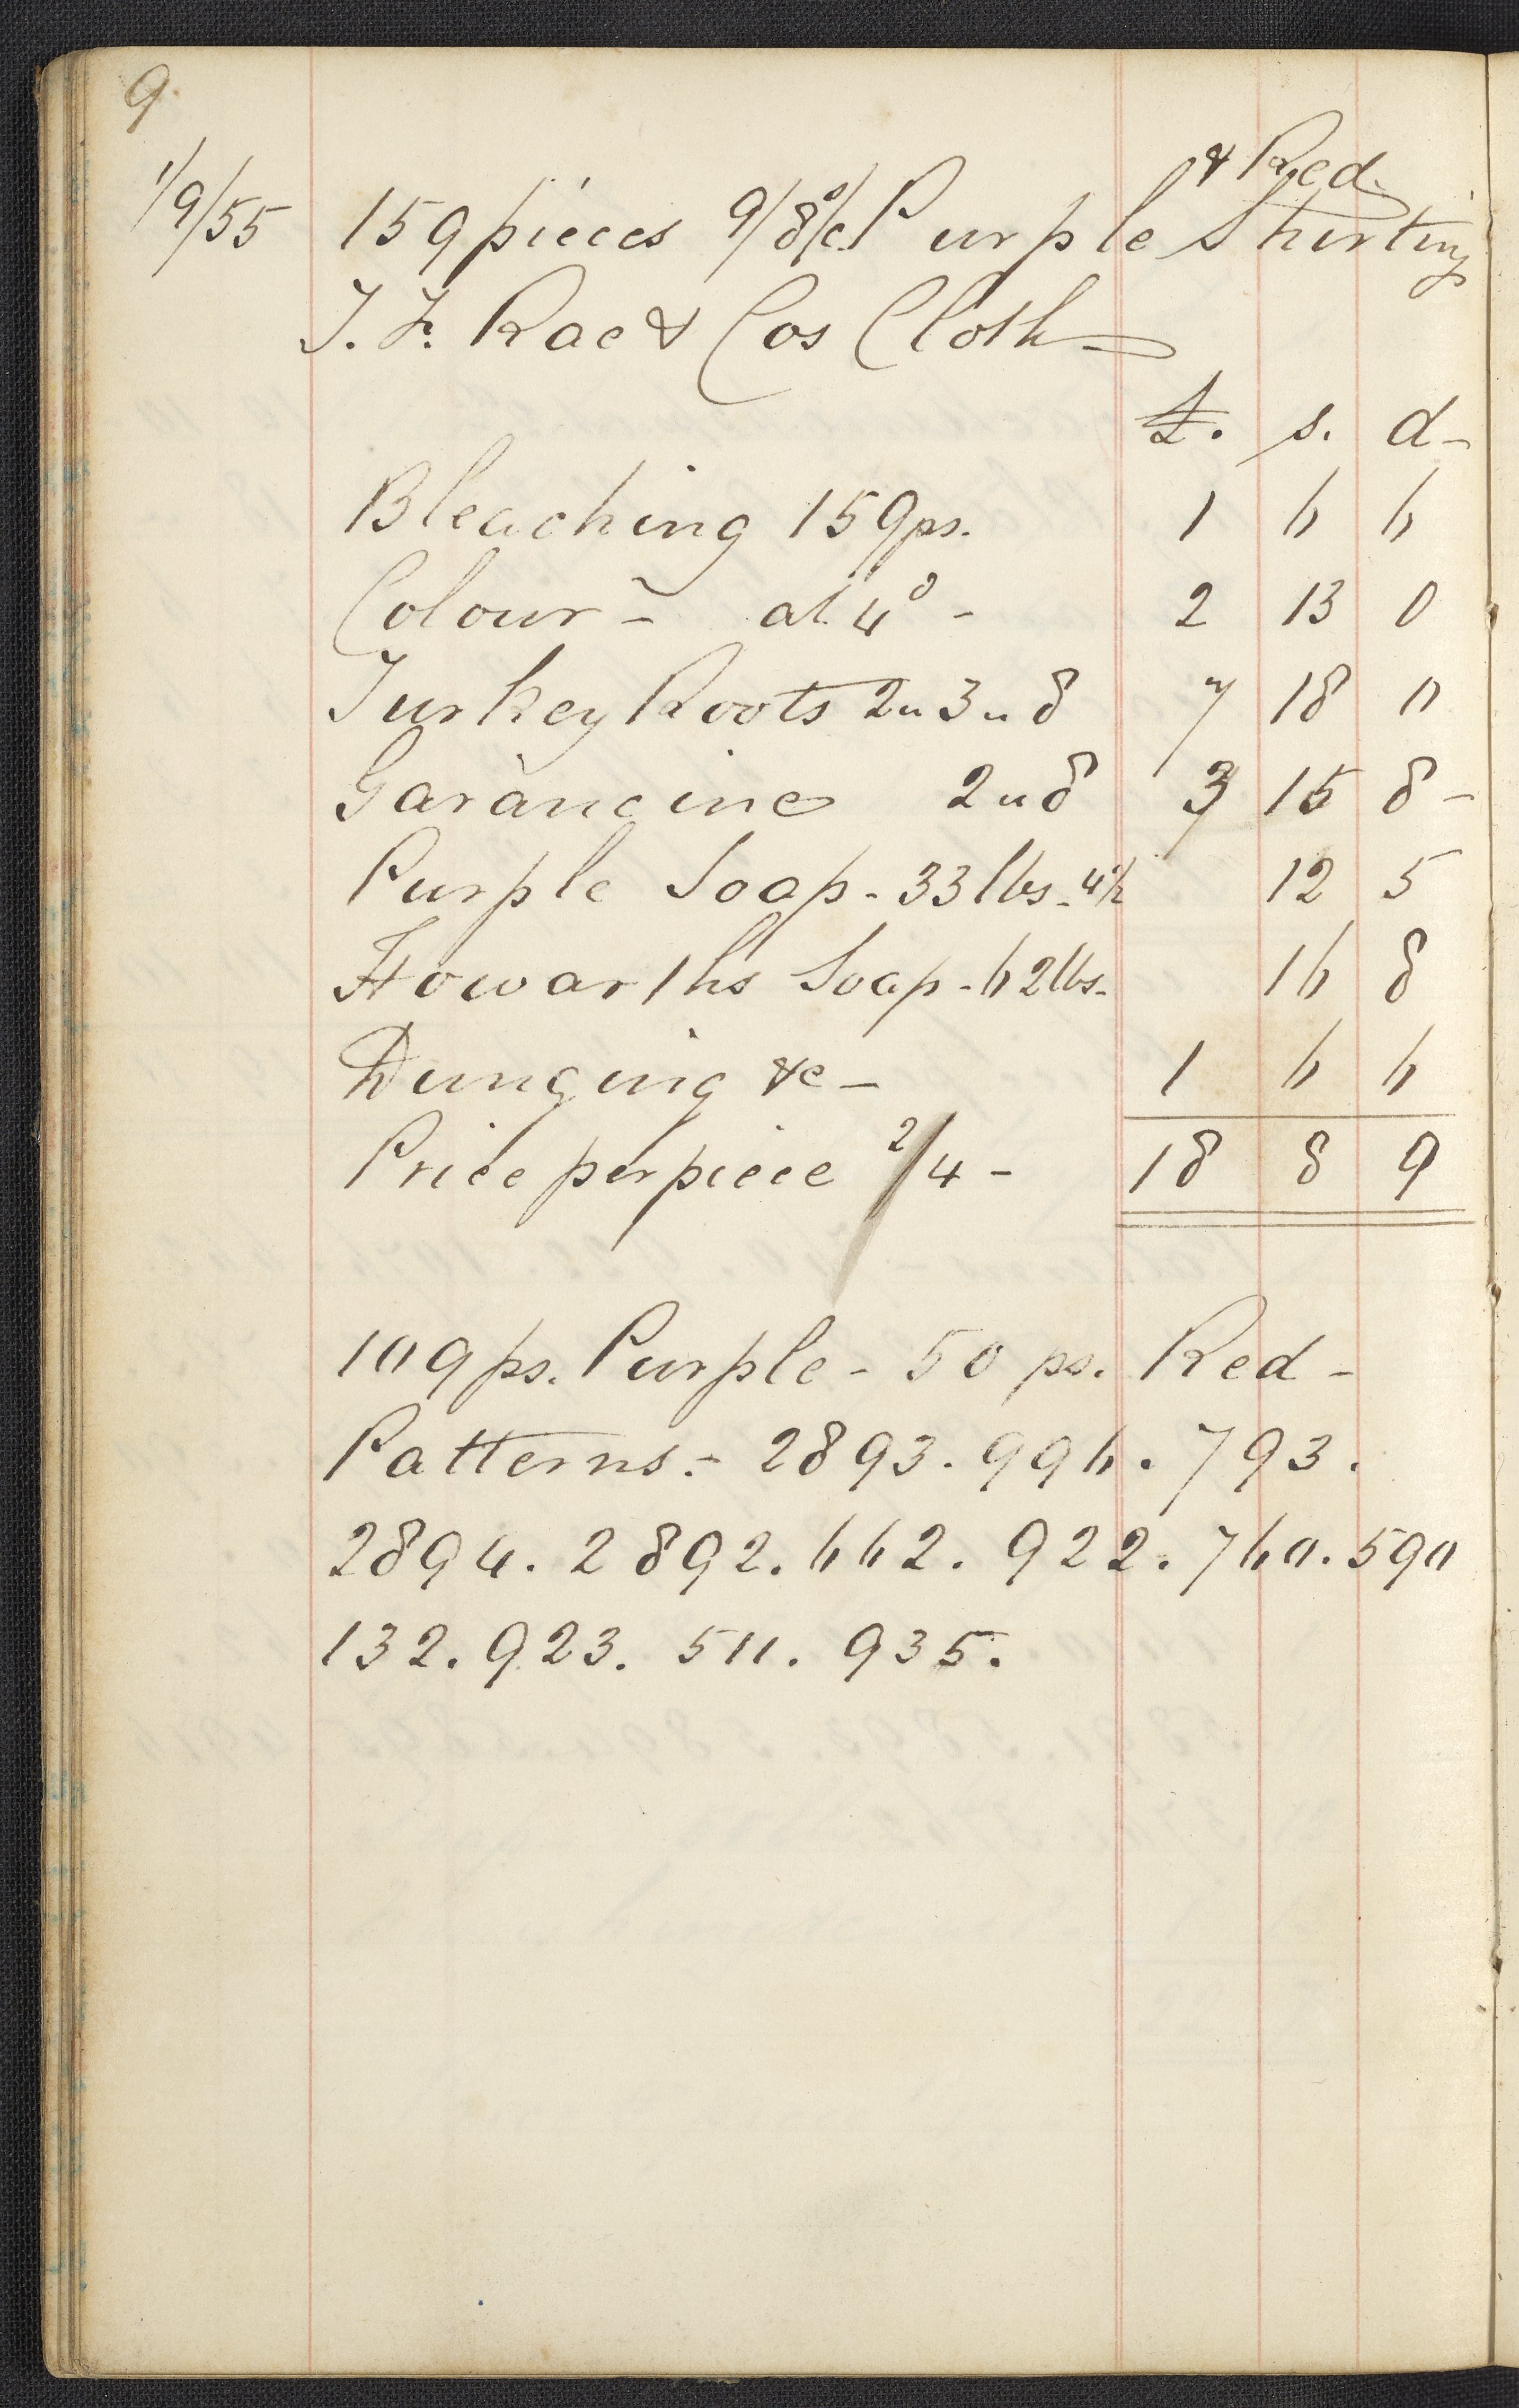 9.
1/9/55 159 pieces 9/8 Purple & Red Shirting
J. F. Rae & Cos Cloth
£. s. d
Bleaching 159 ps. 1 6 6
Colour - at 4d - 2 13 0
Turkey Roots 2 " 3 " 8 7 18 0
Garancine 2 " 8 3 15 8 -
Purple Soap - 33 lbs - 4½ 12 5
Howarths Soap - 62 lbs - 16 8
Dunging &c - 1 6 6
Price per piece 2/4 - 18 8 9
109 ps. Purple - 50 ps. Red -
Patterns. - 2893. 996. 793.
2894. 2892. 662. 922. 760. 590
132. 923. 511. 935.